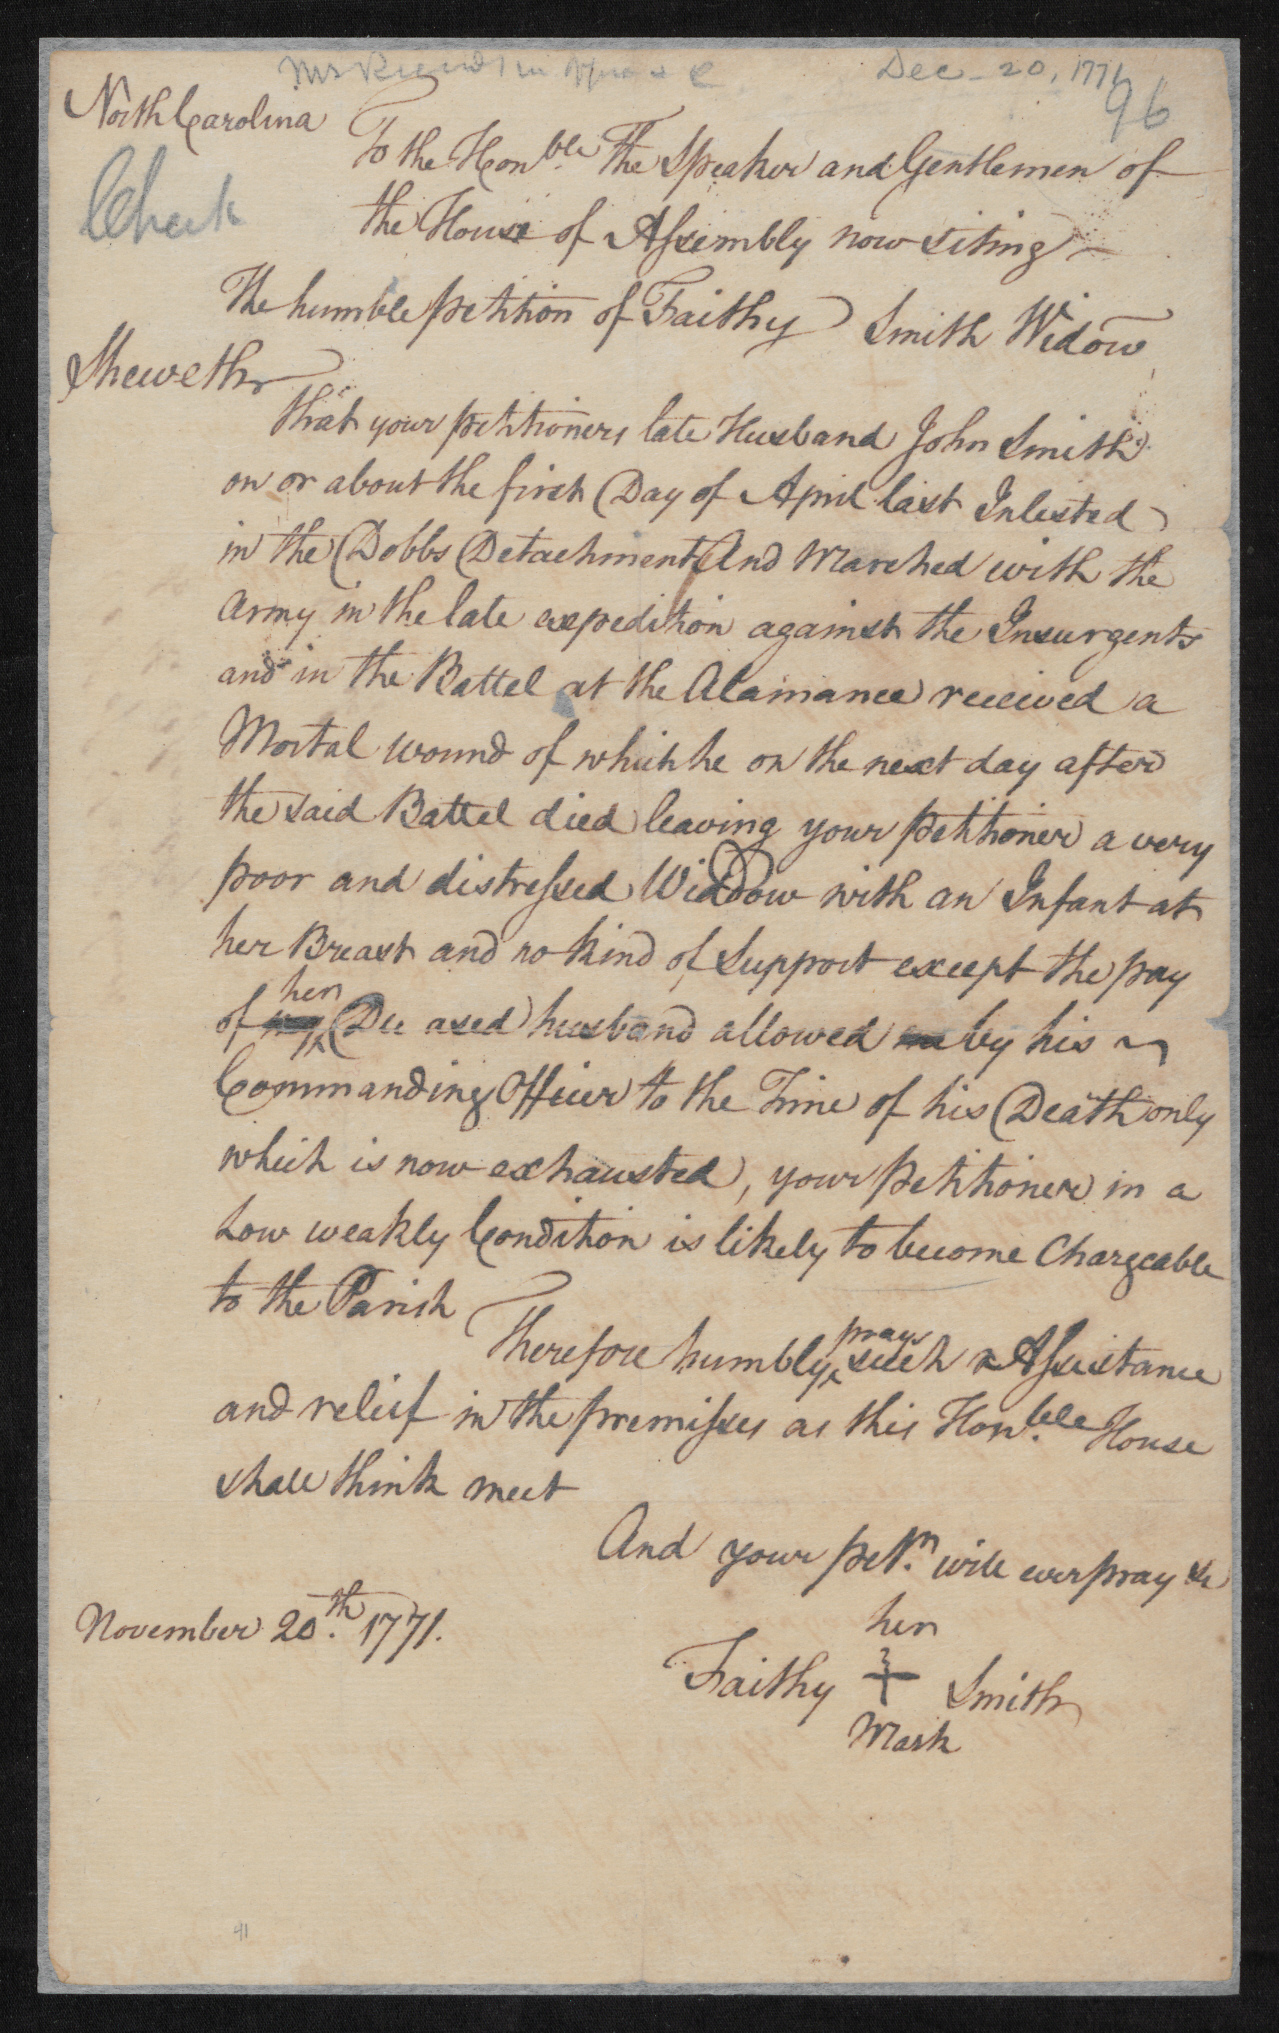 Dec - 20, 1771
96
North Carolina
Check
To the Hon.ble The Speaker and Gentlemen of
the House of Assembly now siting
The humble petition of Faithy Smith Widow
Sheweth
that your petitioners late Husband John Smith
on or about the first Day of April last Inlested
in the Dobbs Detachment And Marched with the
Army in the late expedition against the Insurgents
and in the Battel at the Alamance received a
Mortal wound of which he on the next day after
the said Battel died leaving your petitioner a very
poor and distressed Widdow with an Infant at
her Breast and no kind of Support except the pay
of her Deceased husband allowed by his
Commanding Officer to the Time of his Death only
which is now exhausted, your petitioner in a
Low weakly Condition is likely to become Chargeable
to the Parish
Therefore humbly prays such Assistance
and relief in the premisses as this Hon.ble House
shall think meet
And your pet.r will ever pray &c
November 20.th 1771.
her
Faithy + Smith
Mark
41